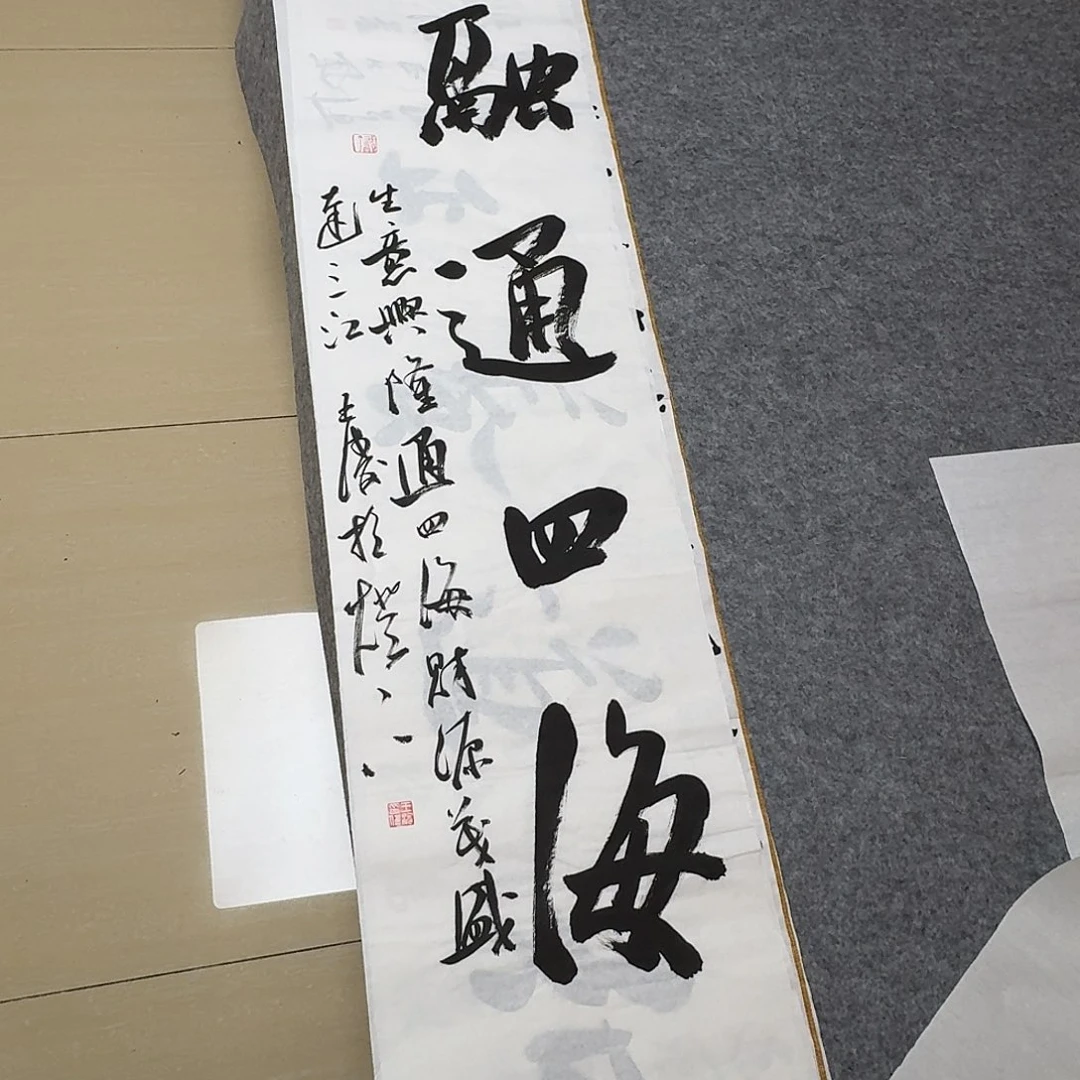 融通四海
生意興隆通四海財源茂盛
達三江 王